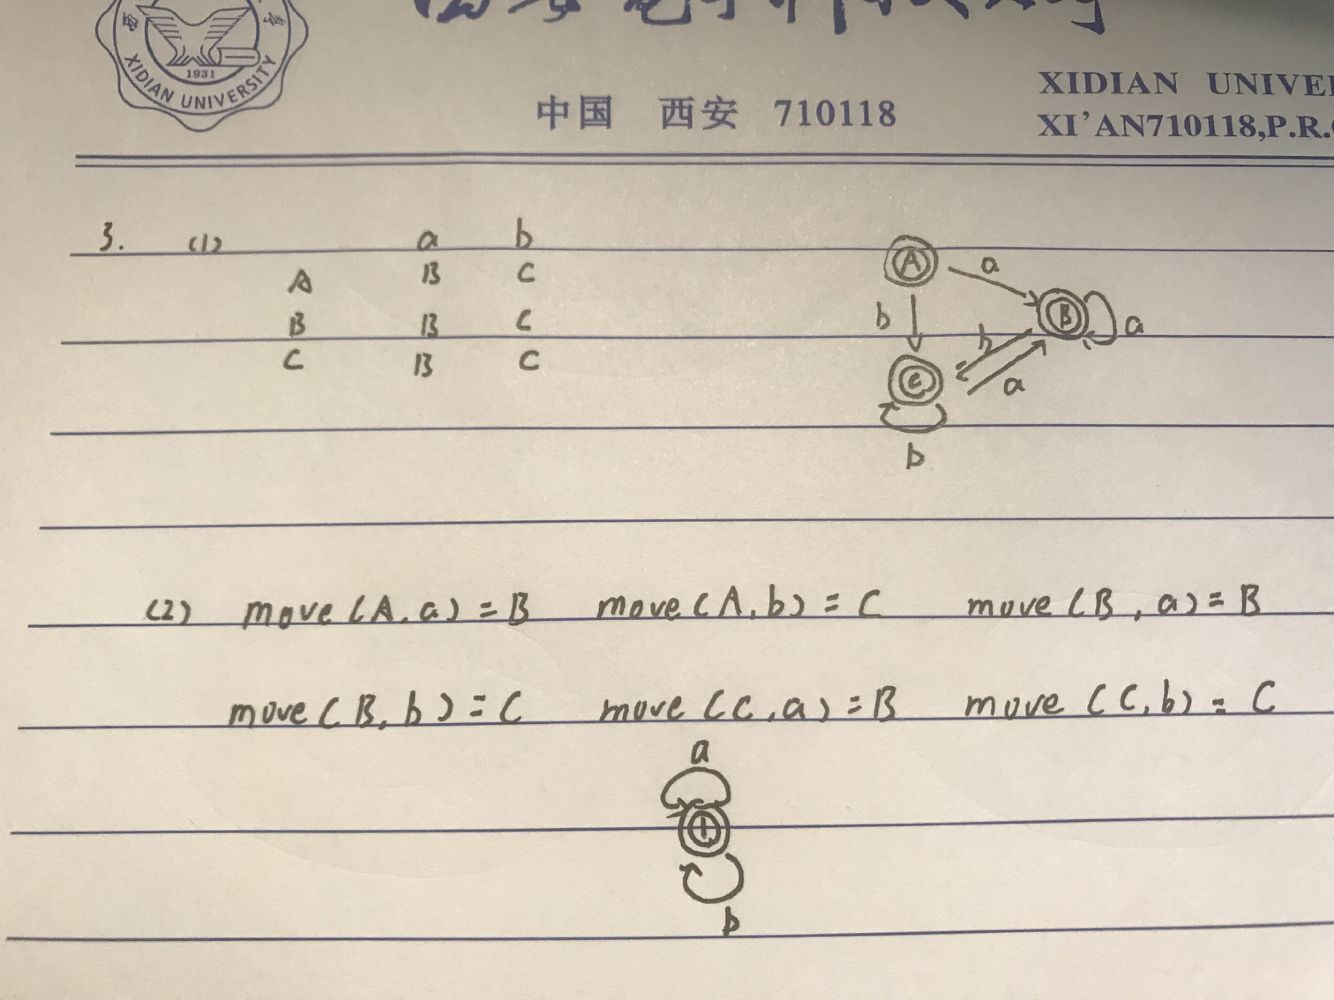 XIDIAN UNIVERSITY
1931
中国 西安 710118
XIDIAN UNIVE
XI'AN710118,P.R.
3. (1) a b
A B C
B B C
C B C
A
a
b
B
a
b
a
C
b
(2) move(A,a)=B move(A,b)=C move(B,a)=B
move(B,b)=C move(C,a)=B move(C,b)=C
a
1
b